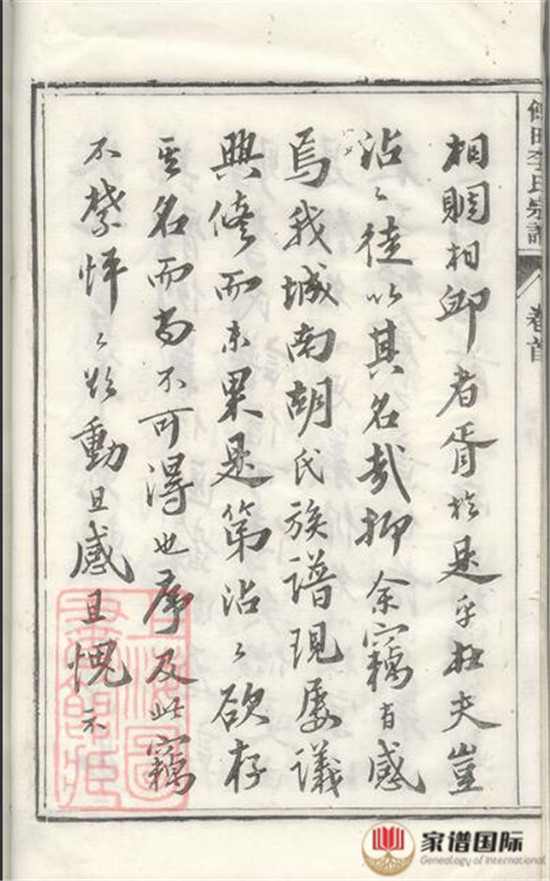 田李氏宗譜
卷首
相賙相卹者胥於是乎在夫豈
沾々徒以其名哉抑余竊有感
焉我城南胡氏族譜現屡議
興修而未果是第沾々欲存
其名而尚不可得也序及此竊
不禁怦々欲動且感且愧云
上海圖書館藏
家谱国际
Genealogy of International